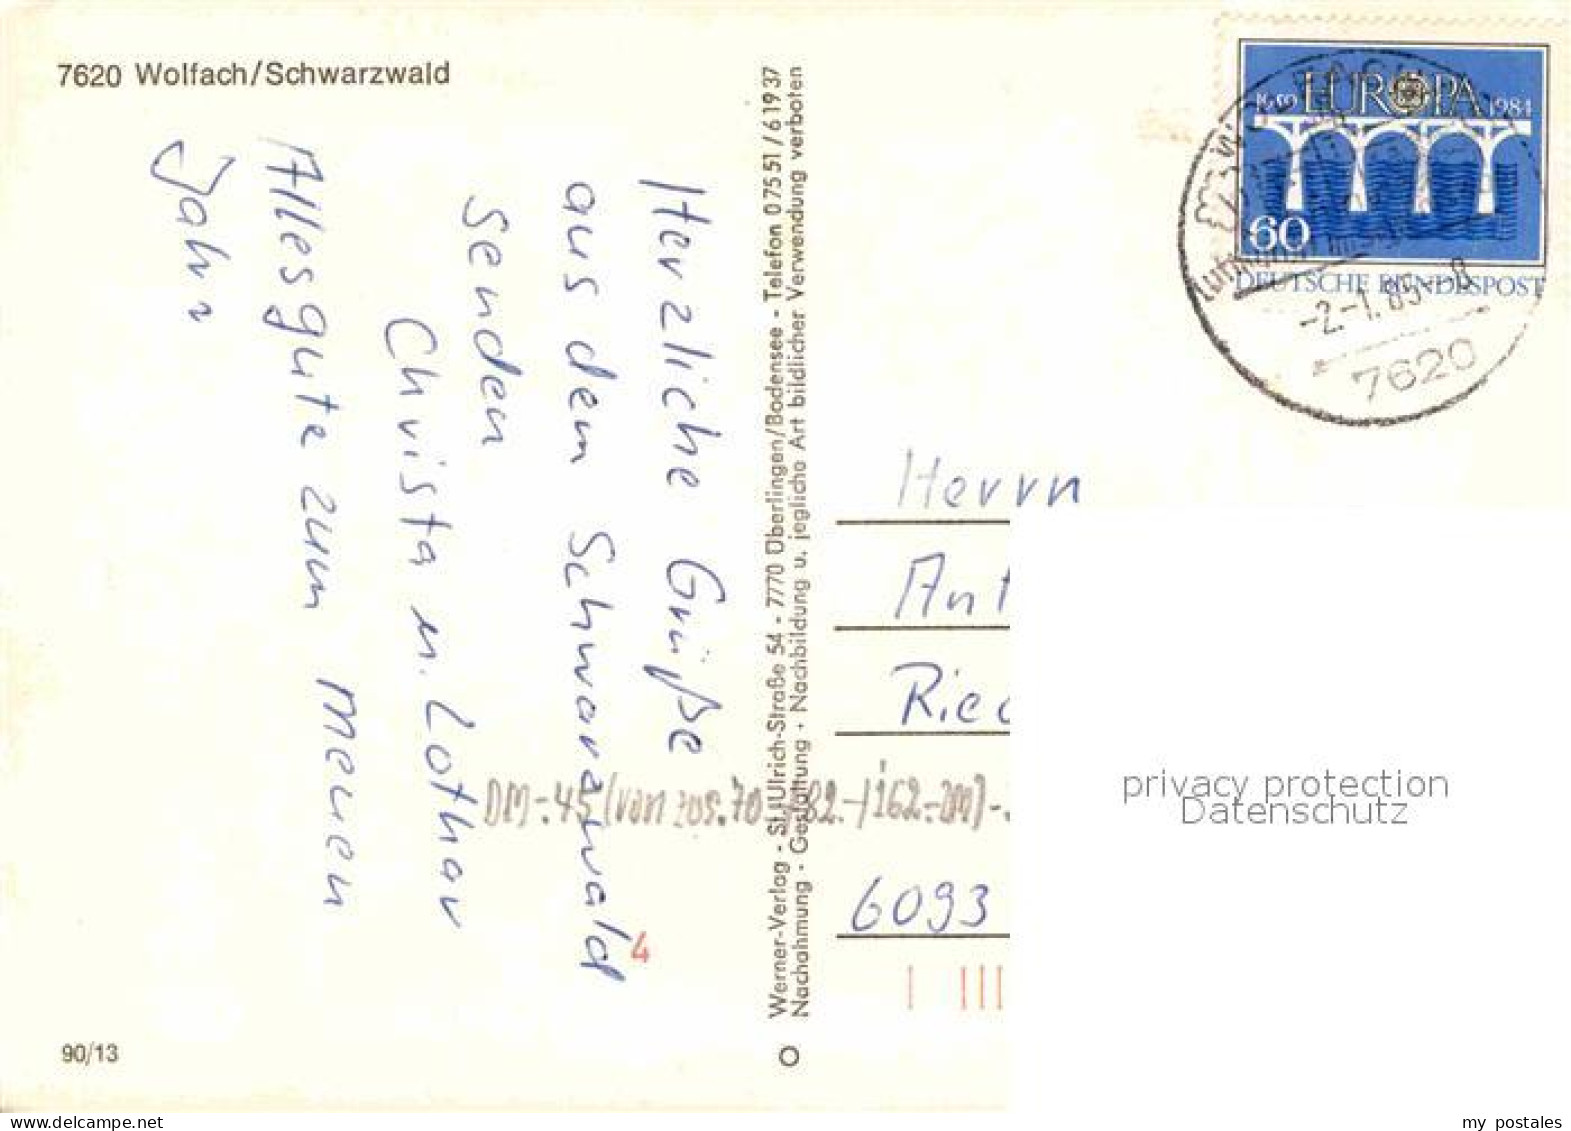 7620 Wolfach/Schwarzwald
Herzliche Grüße
aus dem Schwarzwald
senden
Christa u. Lothar
Alles gute zum neuen
Jahr
90/13
Werner-Verlag - St.-Ulrich-Straße 54 - 7770 Überlingen/Bodensee - Telefon 0 75 51 / 6 19 37
Nachahmung - Gestaltung + Nachbildung u. jegliche Art bildlicher Verwendung verboten
1959 EUROPA 1984
60
DEUTSCHE BUNDESPOST
-2.-1.85--8
7620
Herrn
Ant
Ried
DM-:45 (von zus. 70
82.-/162.-DM)-
6093
4
privacy protection
Datenschutz
my postales